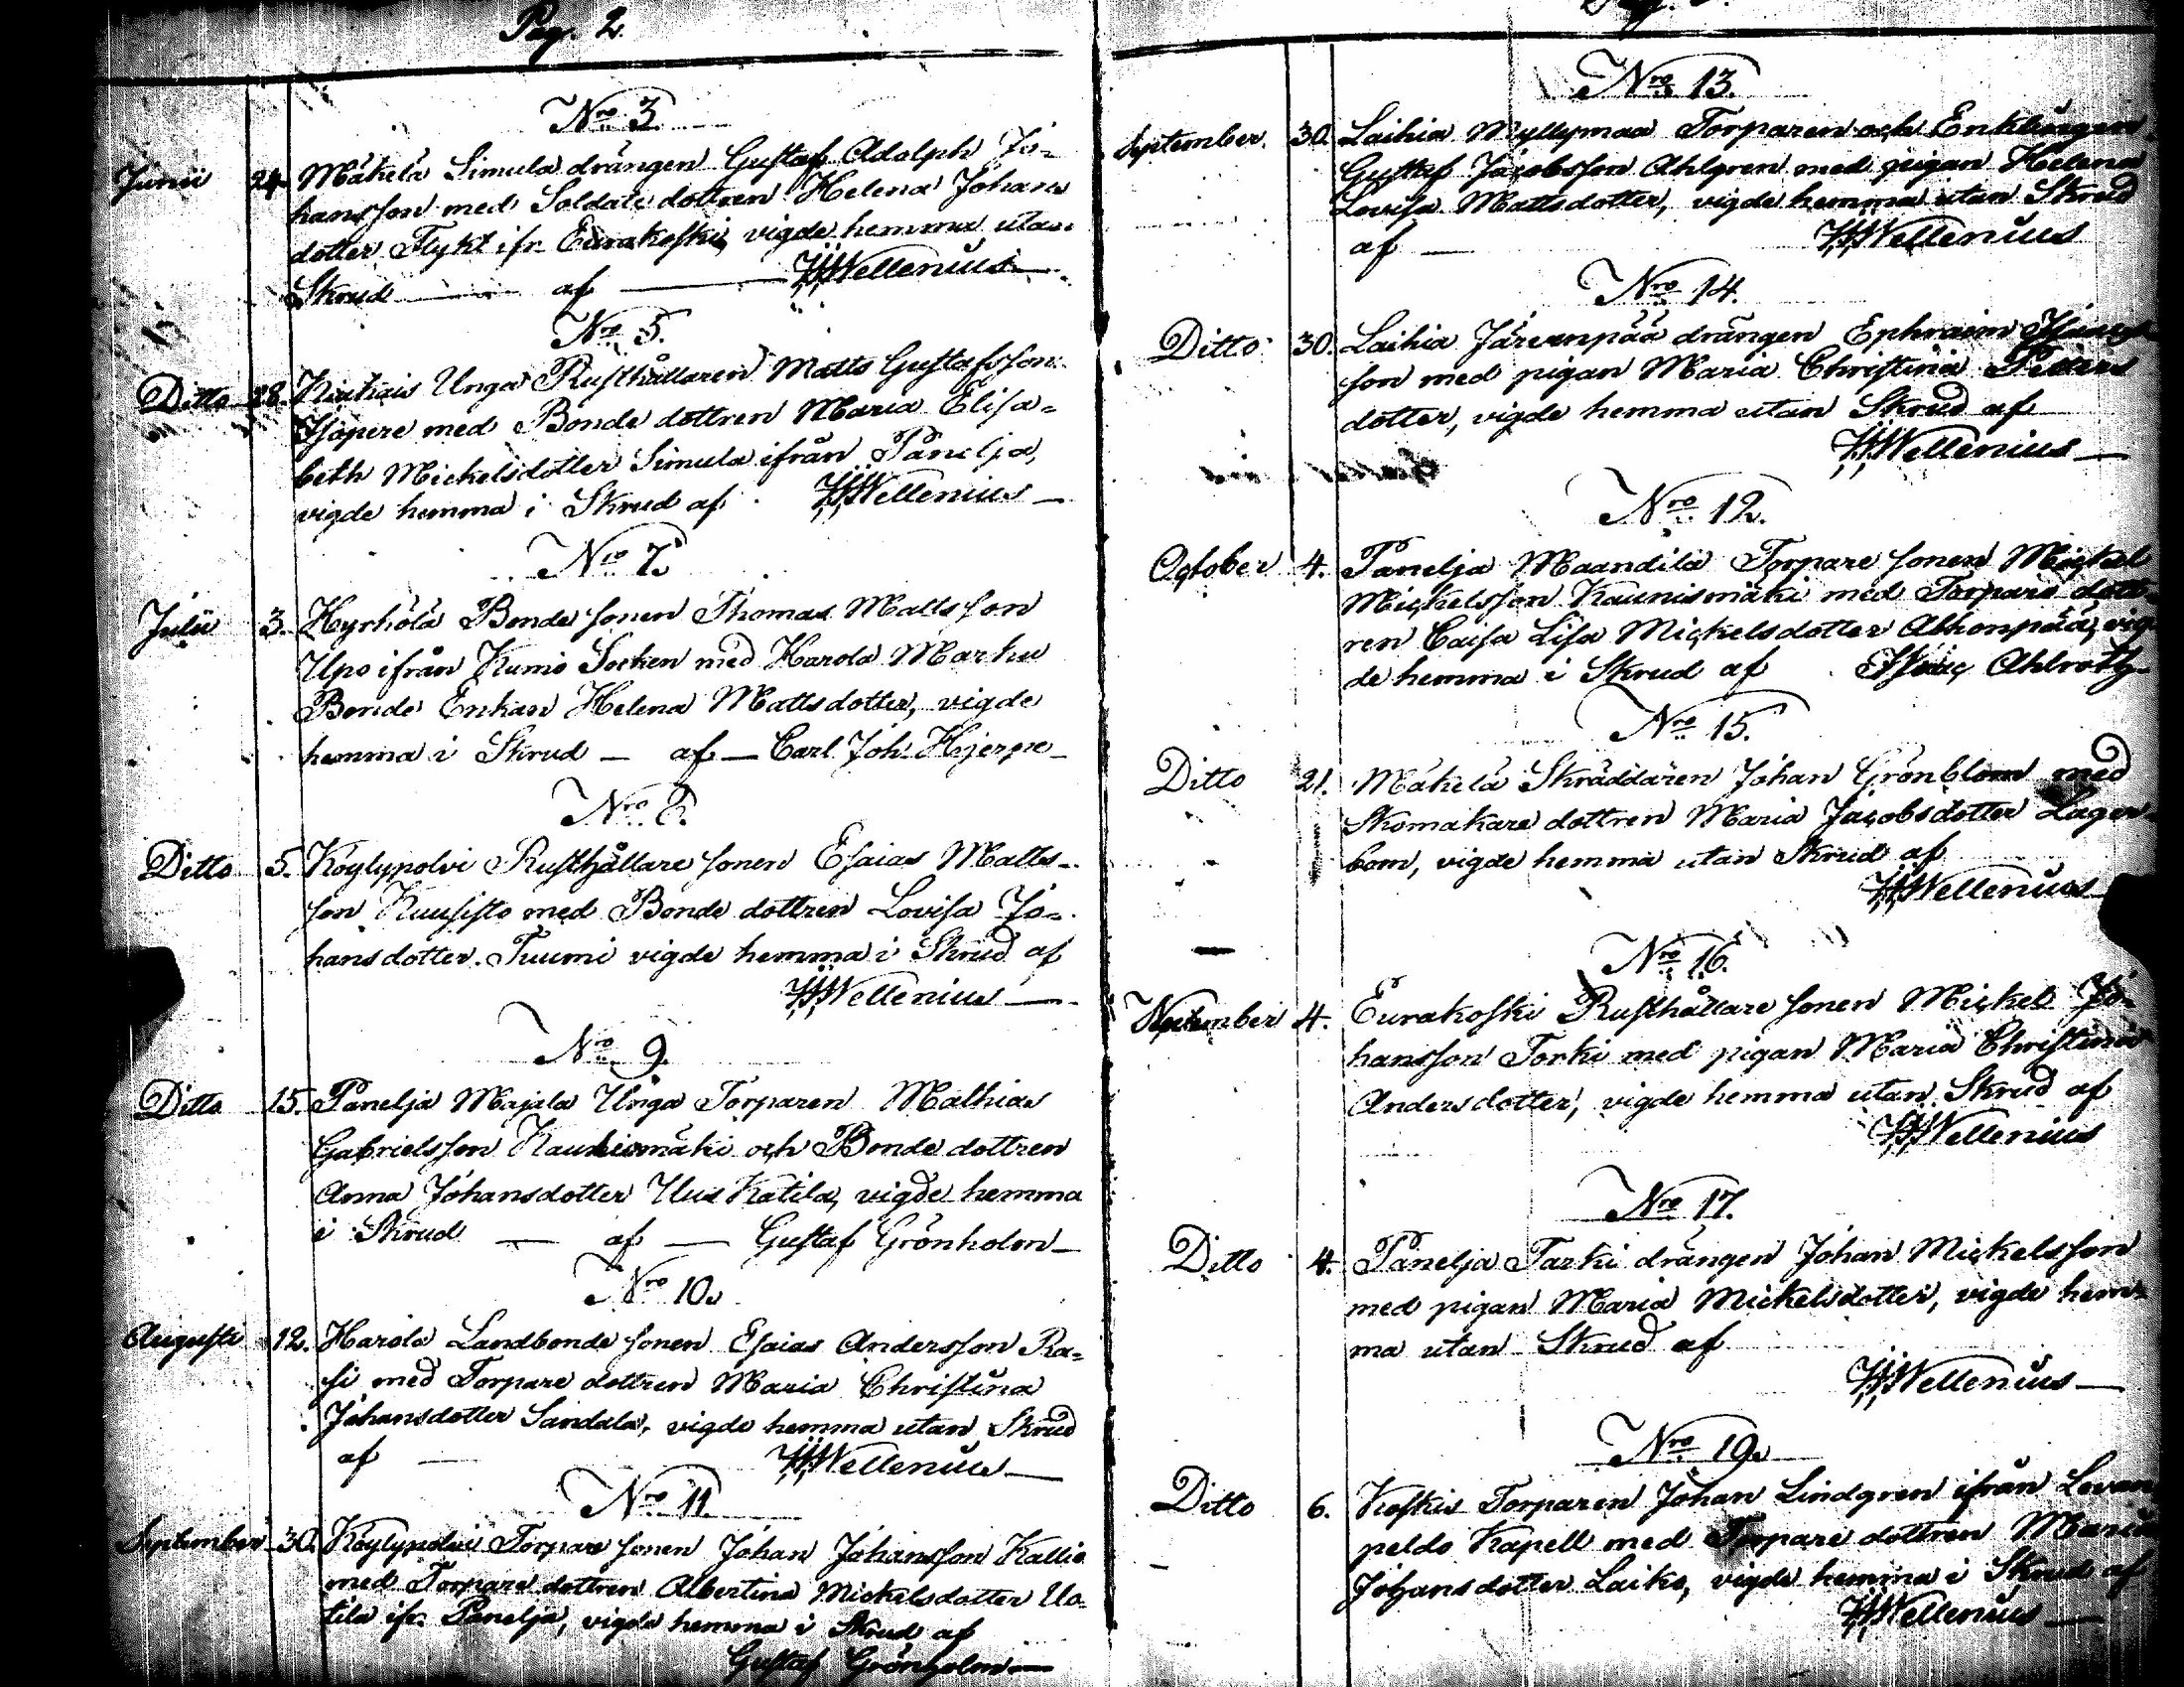 Pag. 2.
Nro 3.
Junii 24. Mäkelä Simula drängen Gustaf Adolph Jo=
hansson med Soldate dottren Helena Johans
dotter Flykt ifr. Eurakoski, vigde hemma utan
Skrud — af — Wellenius —
Nro 5.
Ditto 28. Unga Rusthållaren Matts Gustafsson
med Bonde dottren Maria Elisa=
beth Mickelsdotter Simula ifrån Panelja,
vigde hemma i Skrud af Wellenius —
Nro 7.
Julii 3. Hyrhölä Bonde sonen Thomas Mattsson
Upo ifrån Kumo Socken med Harola Marhu
Bonde Enkan Helena Mattsdotter, vigde
hemma i Skrud — af — Carl Joh. Hjerpe —
Nro 8.
Ditto 5. Köylypolvi Rusthållare sonen Esaias Matts=
son Kuusisto med Bonde dottren Lovisa Jo=
hansdotter Tuumi vigde hemma i Skrud af
Wellenius —
Nro 9.
Ditto 15. Panelja Majala Unga Torparen Mathias
Gabrielsson Kaunismäki och Bonde dottren
Anna Johansdotter Uus Katila, vigde hemma
i Skrud — af — Gustaf Grönholm —
Nro 10.
Augusti 12. Harola Landbonde sonen Esaias Andersson Ra=
si med Torpare dottren Maria Christina
Johansdotter Sandala, vigde hemma utan Skrud
af — Wellenius —
Nro 11.
September 30. Köylypolvi Torpare sonen Johan Johansson Kallio
med Torpare dottren Albertina Mickelsdotter Uo=
tila ifr. Panelja, vigde hemma i Skrud af
Gustaf Grönholm —
Nro 13.
September 30. Laihia Myllymaa Torparen och Enklingen
Gustaf Jacobsson Ahlgren med pigan Helena
Lovisa Mattsdotter, vigde hemma utan Skrud
af — Wellenius
Nro 14.
Ditto 30. Laihia Järvenpää drängen Ephraim
son med pigan Maria Christina Petters
dotter, vigde hemma utan Skrud af
Wellenius —
Nro 12.
October 4. Panelja Maandila Torpare sonen Mickel
Mickelsson Kaunismäki med Torpare dott=
ren Caisa Lisa Mickelsdotter Ahonpää, vig=
de hemma i Skrud af Isaac Ahlroth
Nro 15.
Ditto 21. Mäkelä Skräddaren Johan Grönblom med
Skomakare dottren Maria Jacobsdotter Lager=
bom, vigde hemma utan Skrud af
Wellenius
Nro 16.
November 4. Eurakoski Rusthållare sonen Mickel Jo=
hansson Torki med pigan Maria Christina
Andersdotter, vigde hemma utan Skrud af
Wellenius
Nro 17.
Ditto 4. Panelja Tarki drängen Johan Mickelsson
med pigan Maria Mickelsdotter, vigde hem=
ma utan Skrud af
Wellenius —
Nro 19.
Ditto 6. Koskis Torparen Johan Lindgren ifrån Levan
peldo Kapell med Torpare dottren Maria
Johansdotter Laiko, vigde hemma i Skrud af
Wellenius —